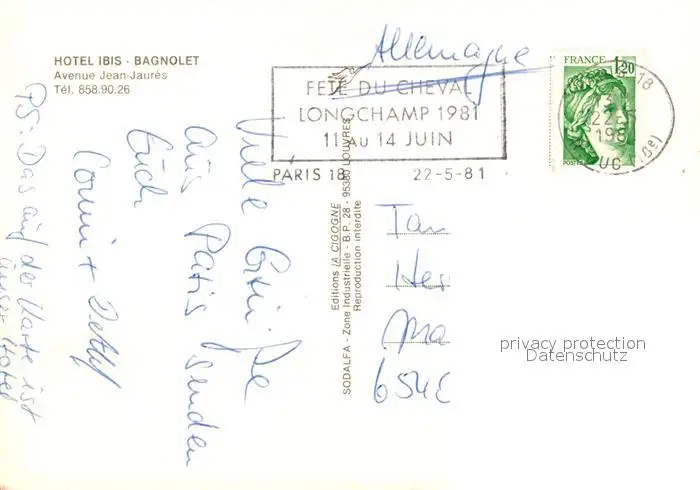 HOTEL IBIS - BAGNOLET
Avenue Jean-Jaurès
Tél. 858.90.26
Allemagne
FETE DU CHEVAL
LONGCHAMP 1981
11 AU 14 JUIN
PARIS 18 22-5-81
FRANCE 1,20
POSTES
18
22-5
198
Viele Grüße
aus Paris senden
Euch
Conni + Detlef
PS: Das auf der Karte ist
unser Hotel
Editions LA CIGOGNE
SODALFA - Zone Industrielle - B.P. 28 - 95380 LOUVRES
Reproduction interdite
Tan
Her
Ma
654
privacy protection
Datenschutz